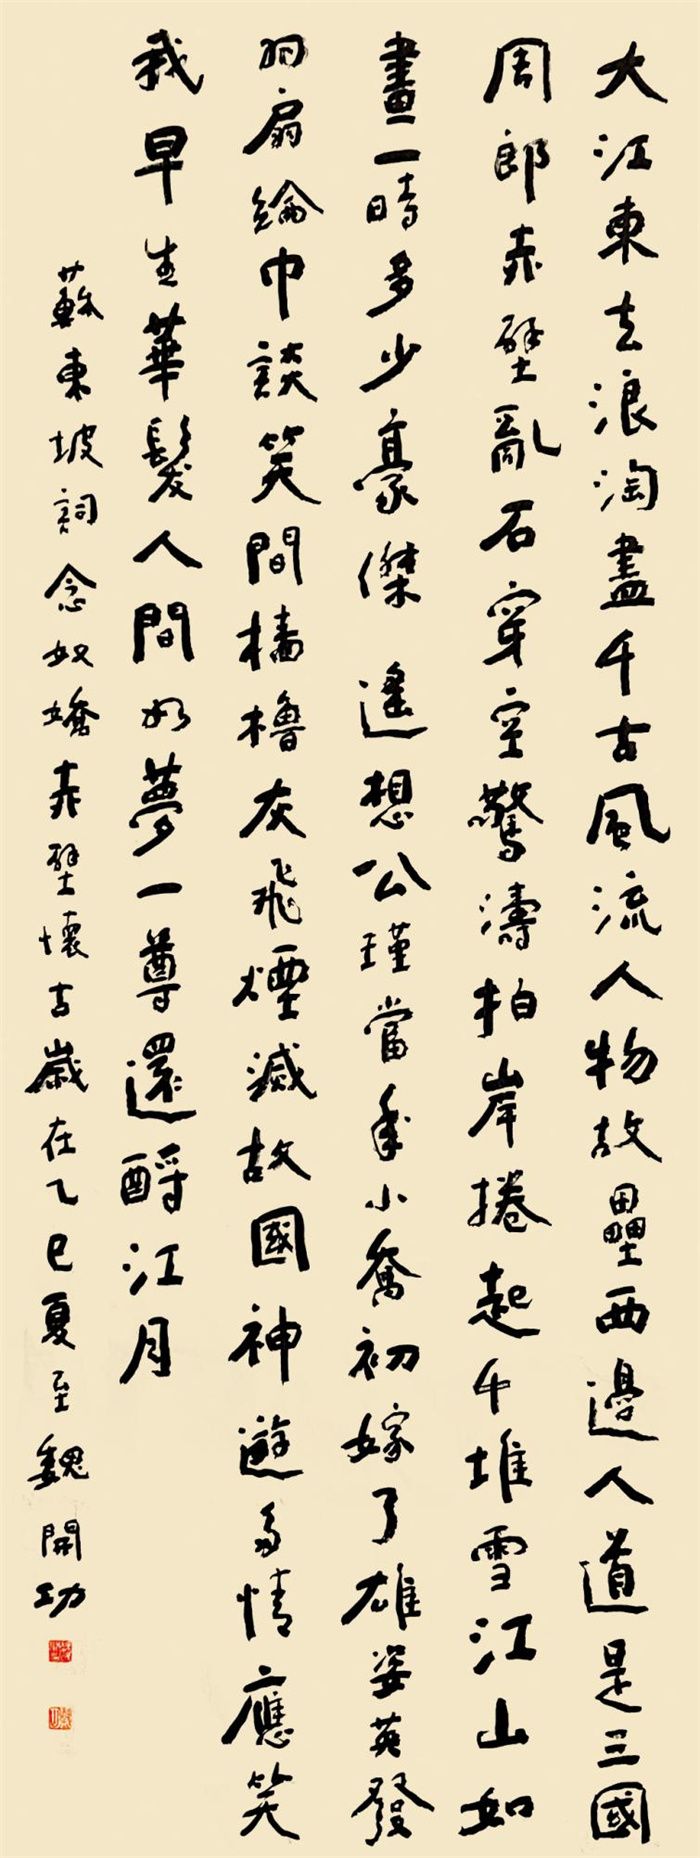 大江東去浪淘盡千古風流人物故壘西邊人道是三國
周郎赤壁亂石穿空驚濤拍岸捲起千堆雪江山如
畫一時多少豪傑 遙想公瑾當年小喬初嫁了雄姿英發
羽扇綸巾談笑間檣櫓灰飛煙滅故國神遊多情應笑
我早生華髮人間如夢一尊還酹江月
蘇東坡詞念奴嬌赤壁懷古歲在乙巳夏至魏開功